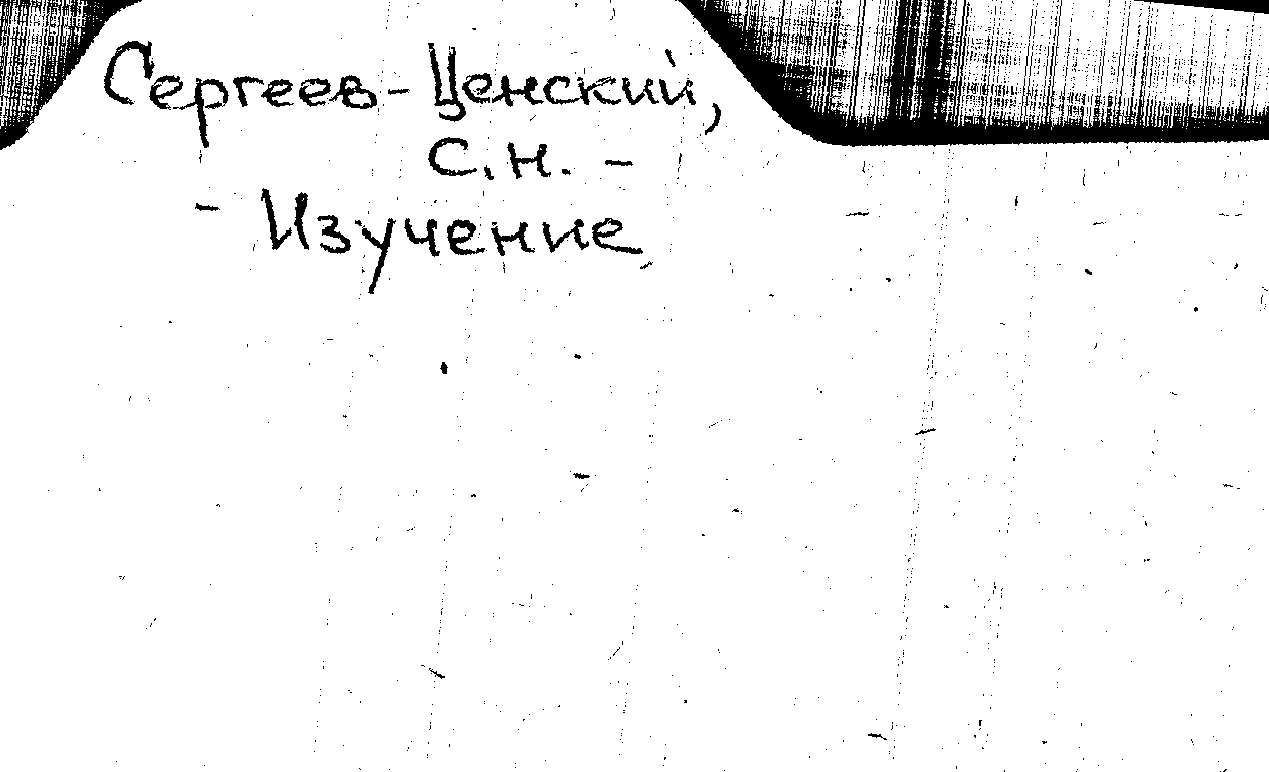 Сергеев-Ценский,
С.Н. -
- Изучение